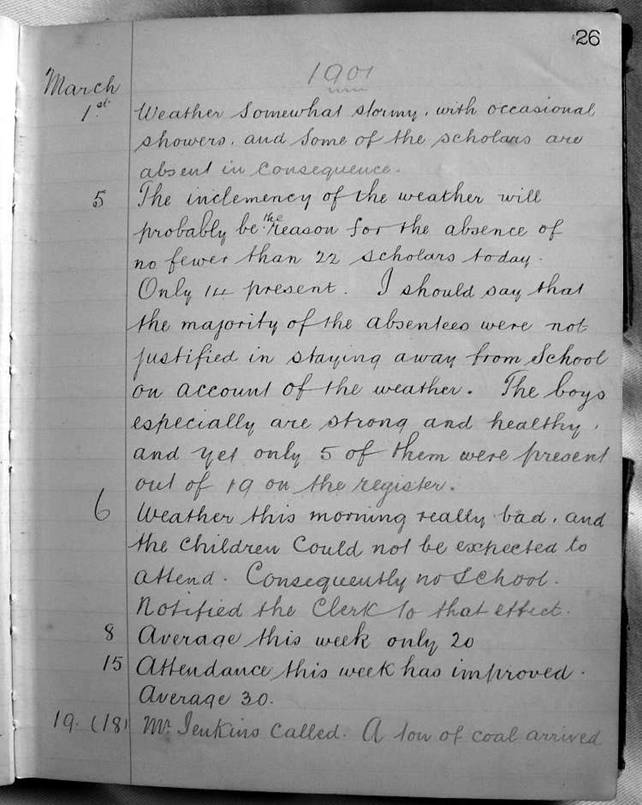 26
1901
March
1st Weather somewhat stormy, with occasional
showers, and some of the scholars are
absent in consequence.
5 The inclemency of the weather will
probably be the reason for the absence of
no fewer than 22 scholars today.
Only 14 present. I should say that
the majority of the absentees were not
justified in staying away from School
on account of the weather. The boys
especially are strong and healthy,
and yet only 5 of them were present
out of 19 on the register.
6 Weather this morning really bad, and
the children could not be expected to
attend. Consequently no School.
Notified the Clerk to that effect.
8 Average this week only 20
15 Attendance this week has improved.
Average 30.
19. (18) Mr Jenkins called. A ton of coal arrived